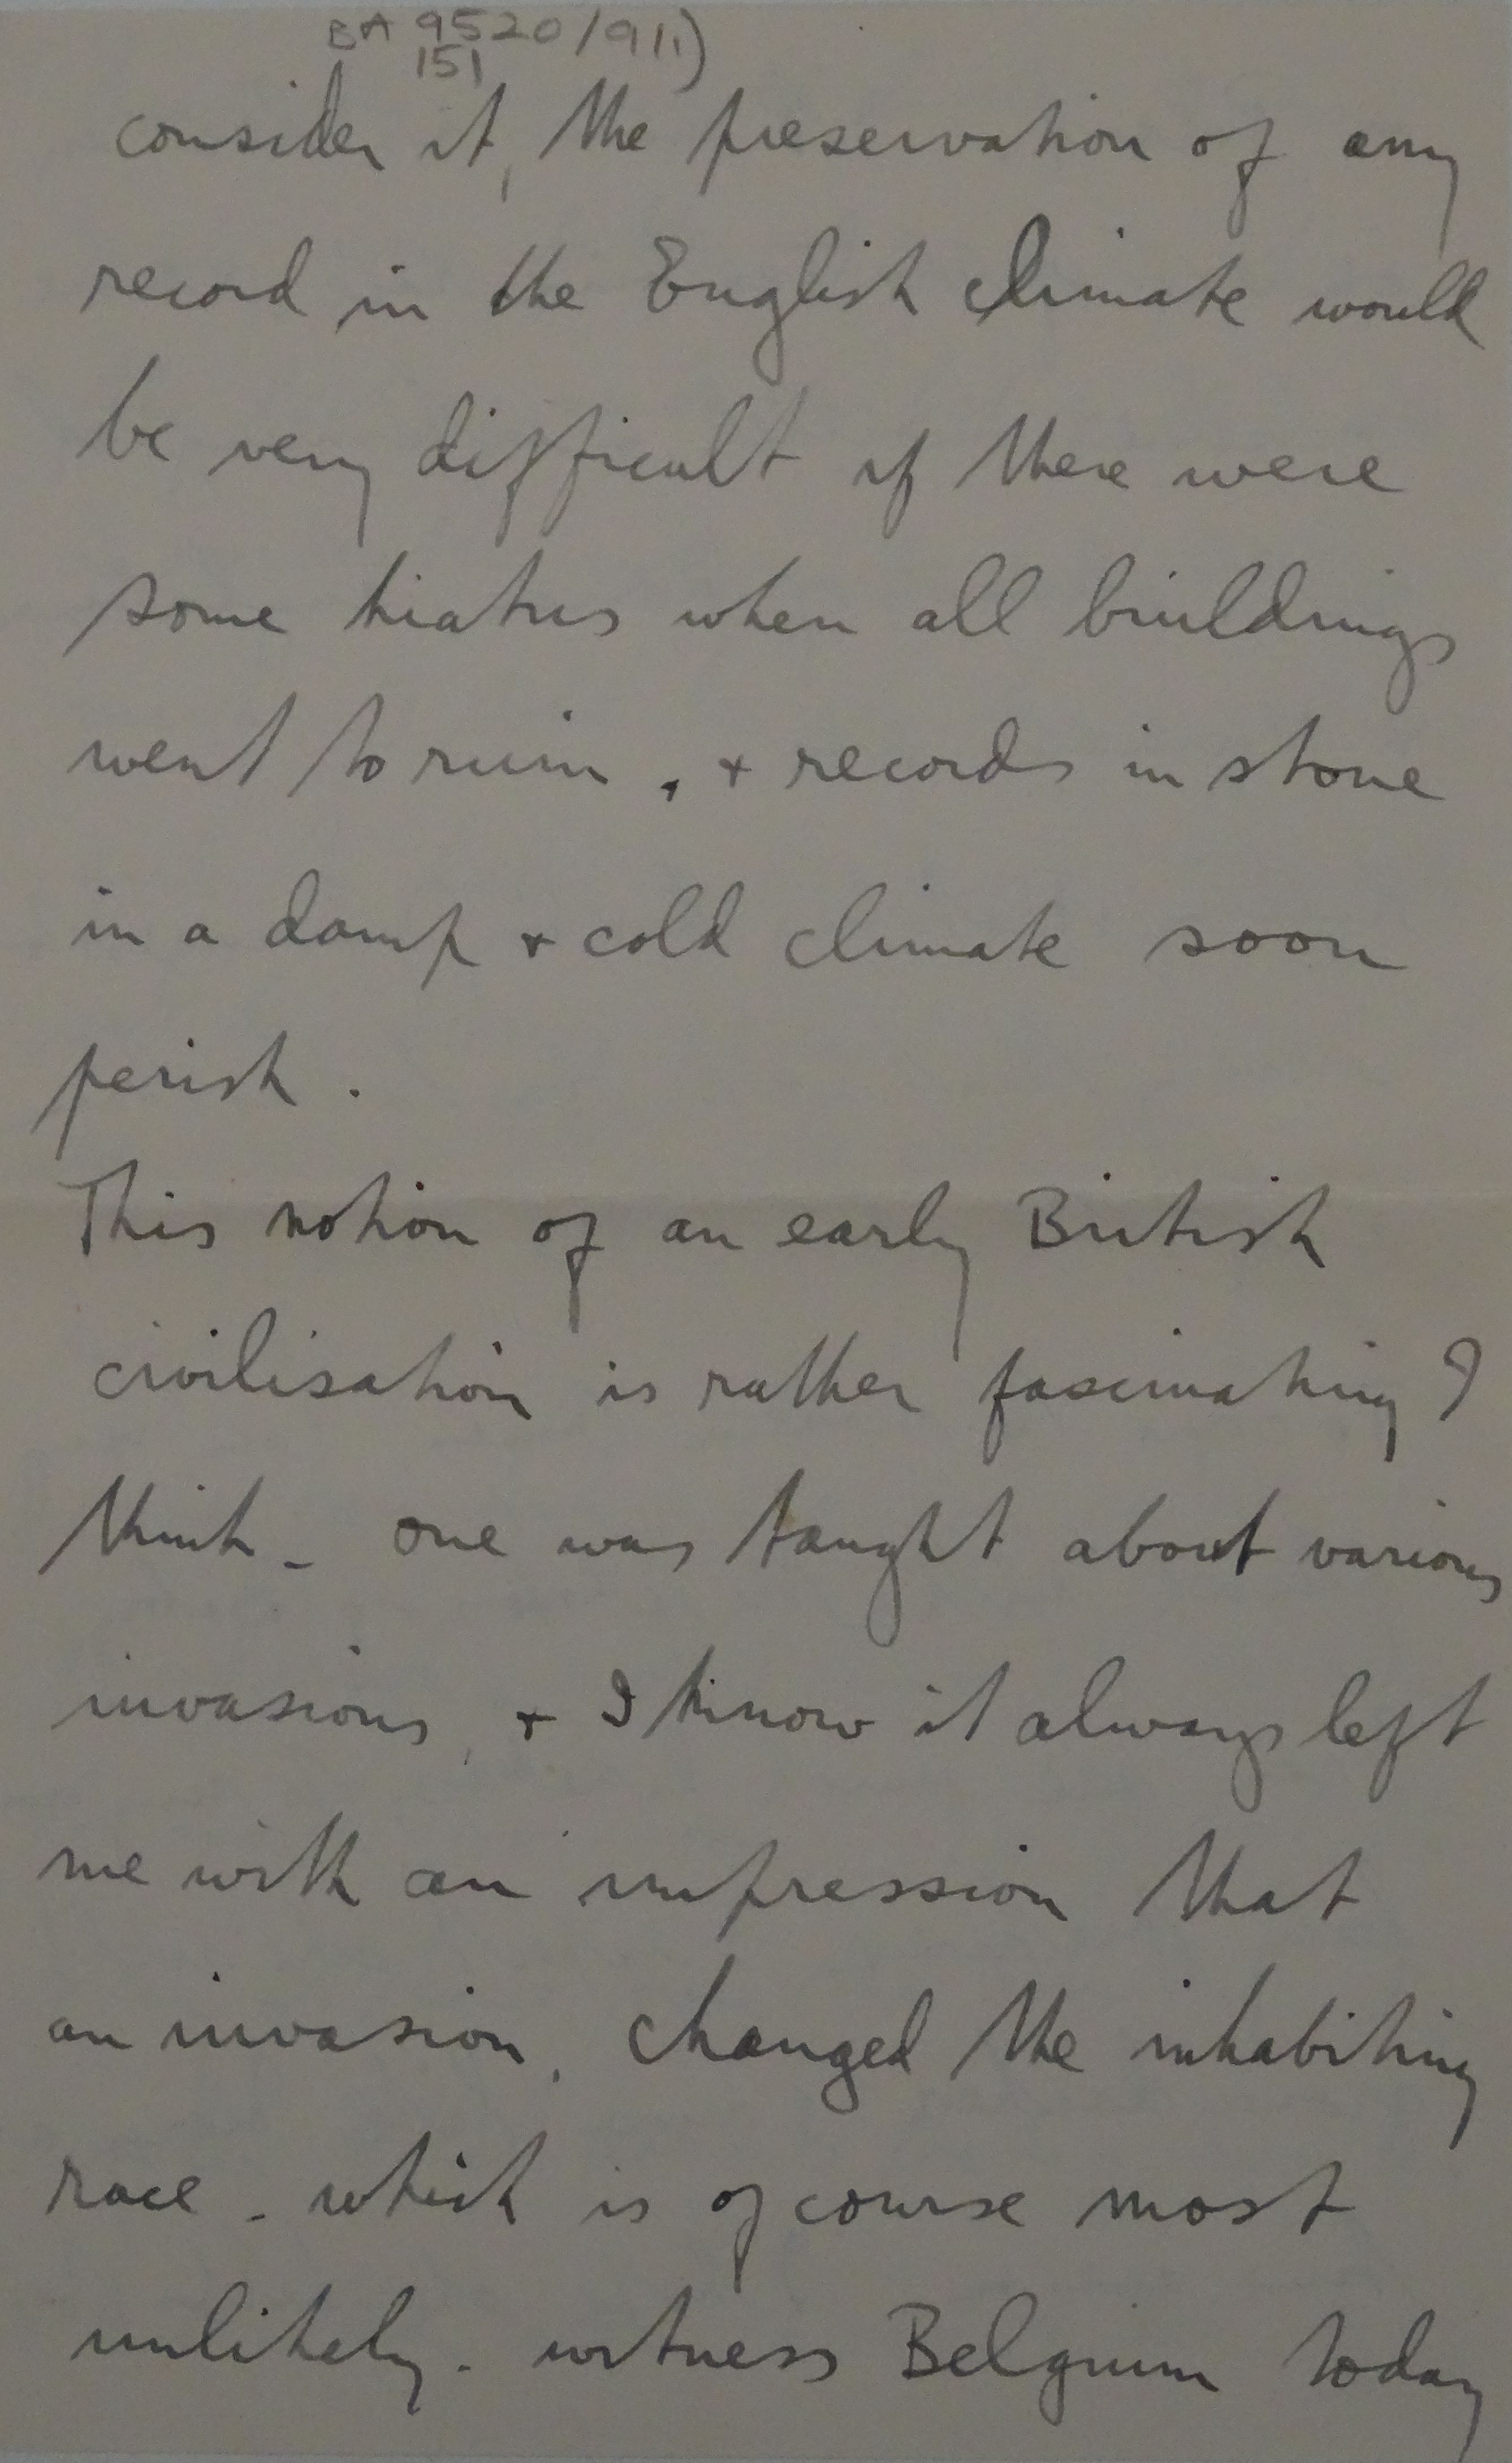 BA 9520/9(1)
151
consider it, the preservation of any
record in the English climate would
be very difficult if there were
some hiatus when all buildings
went to ruin, + records in stone
in a damp + cold climate soon
perish.
This notion of an early British
civilisation is rather fascinating I
think - one was taught about various
invasions, + I know it always left
me with an impression that
an invasion, changed the inhabiting
race - which is of course most
unlikely - witness Belgium today